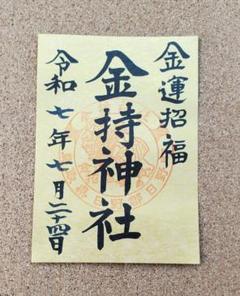 金運招福
金持神社
令和七年七月二十四日